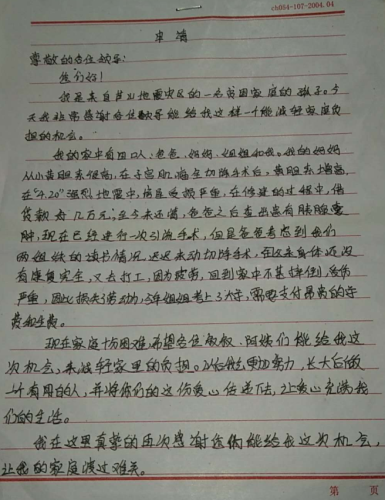 ch004-167-2004.04
申请
尊敬的各位领导:
你们好!
我是来自芦山地震灾区的一名贫困家庭的孩子。今
天我非常感谢各位领导能给我这样一个能减轻家庭负
担的机会。
我的家中有四口人:爸爸、妈妈、姐姐和我。我的妈妈
从小黄胆素很高,在子宫肌瘤全切除手术后,黄胆素增高,
在"4.20"强烈地震中,房屋受损严重,在修建的过程中,借
贷款好几万元,至今未还清,爸爸之后查出患有胰腺囊
肿,现在已经进行一次引流手术,但是爸爸考虑到我们
两姐妹的读书情况,迟迟未动切除手术,在父亲身体还没
有康复完全,又去打工,因为疲劳,回到家中不甚摔倒,受伤
严重,因此损失了劳动力,今年姐姐考上了大学,需要支付昂贵的学
费和生活费。
现在家庭十分困难,希望各位叔叔、阿姨们能给我这
次机会,来减轻家里的负担。我会更加努力,长大后做
一个有用的人,并将你们的这份爱心传递下去,让爱心充满我
们的生活。
我在这里真挚的再次感谢您们能给我这次机会,
让我的家庭渡过难关。
第 页